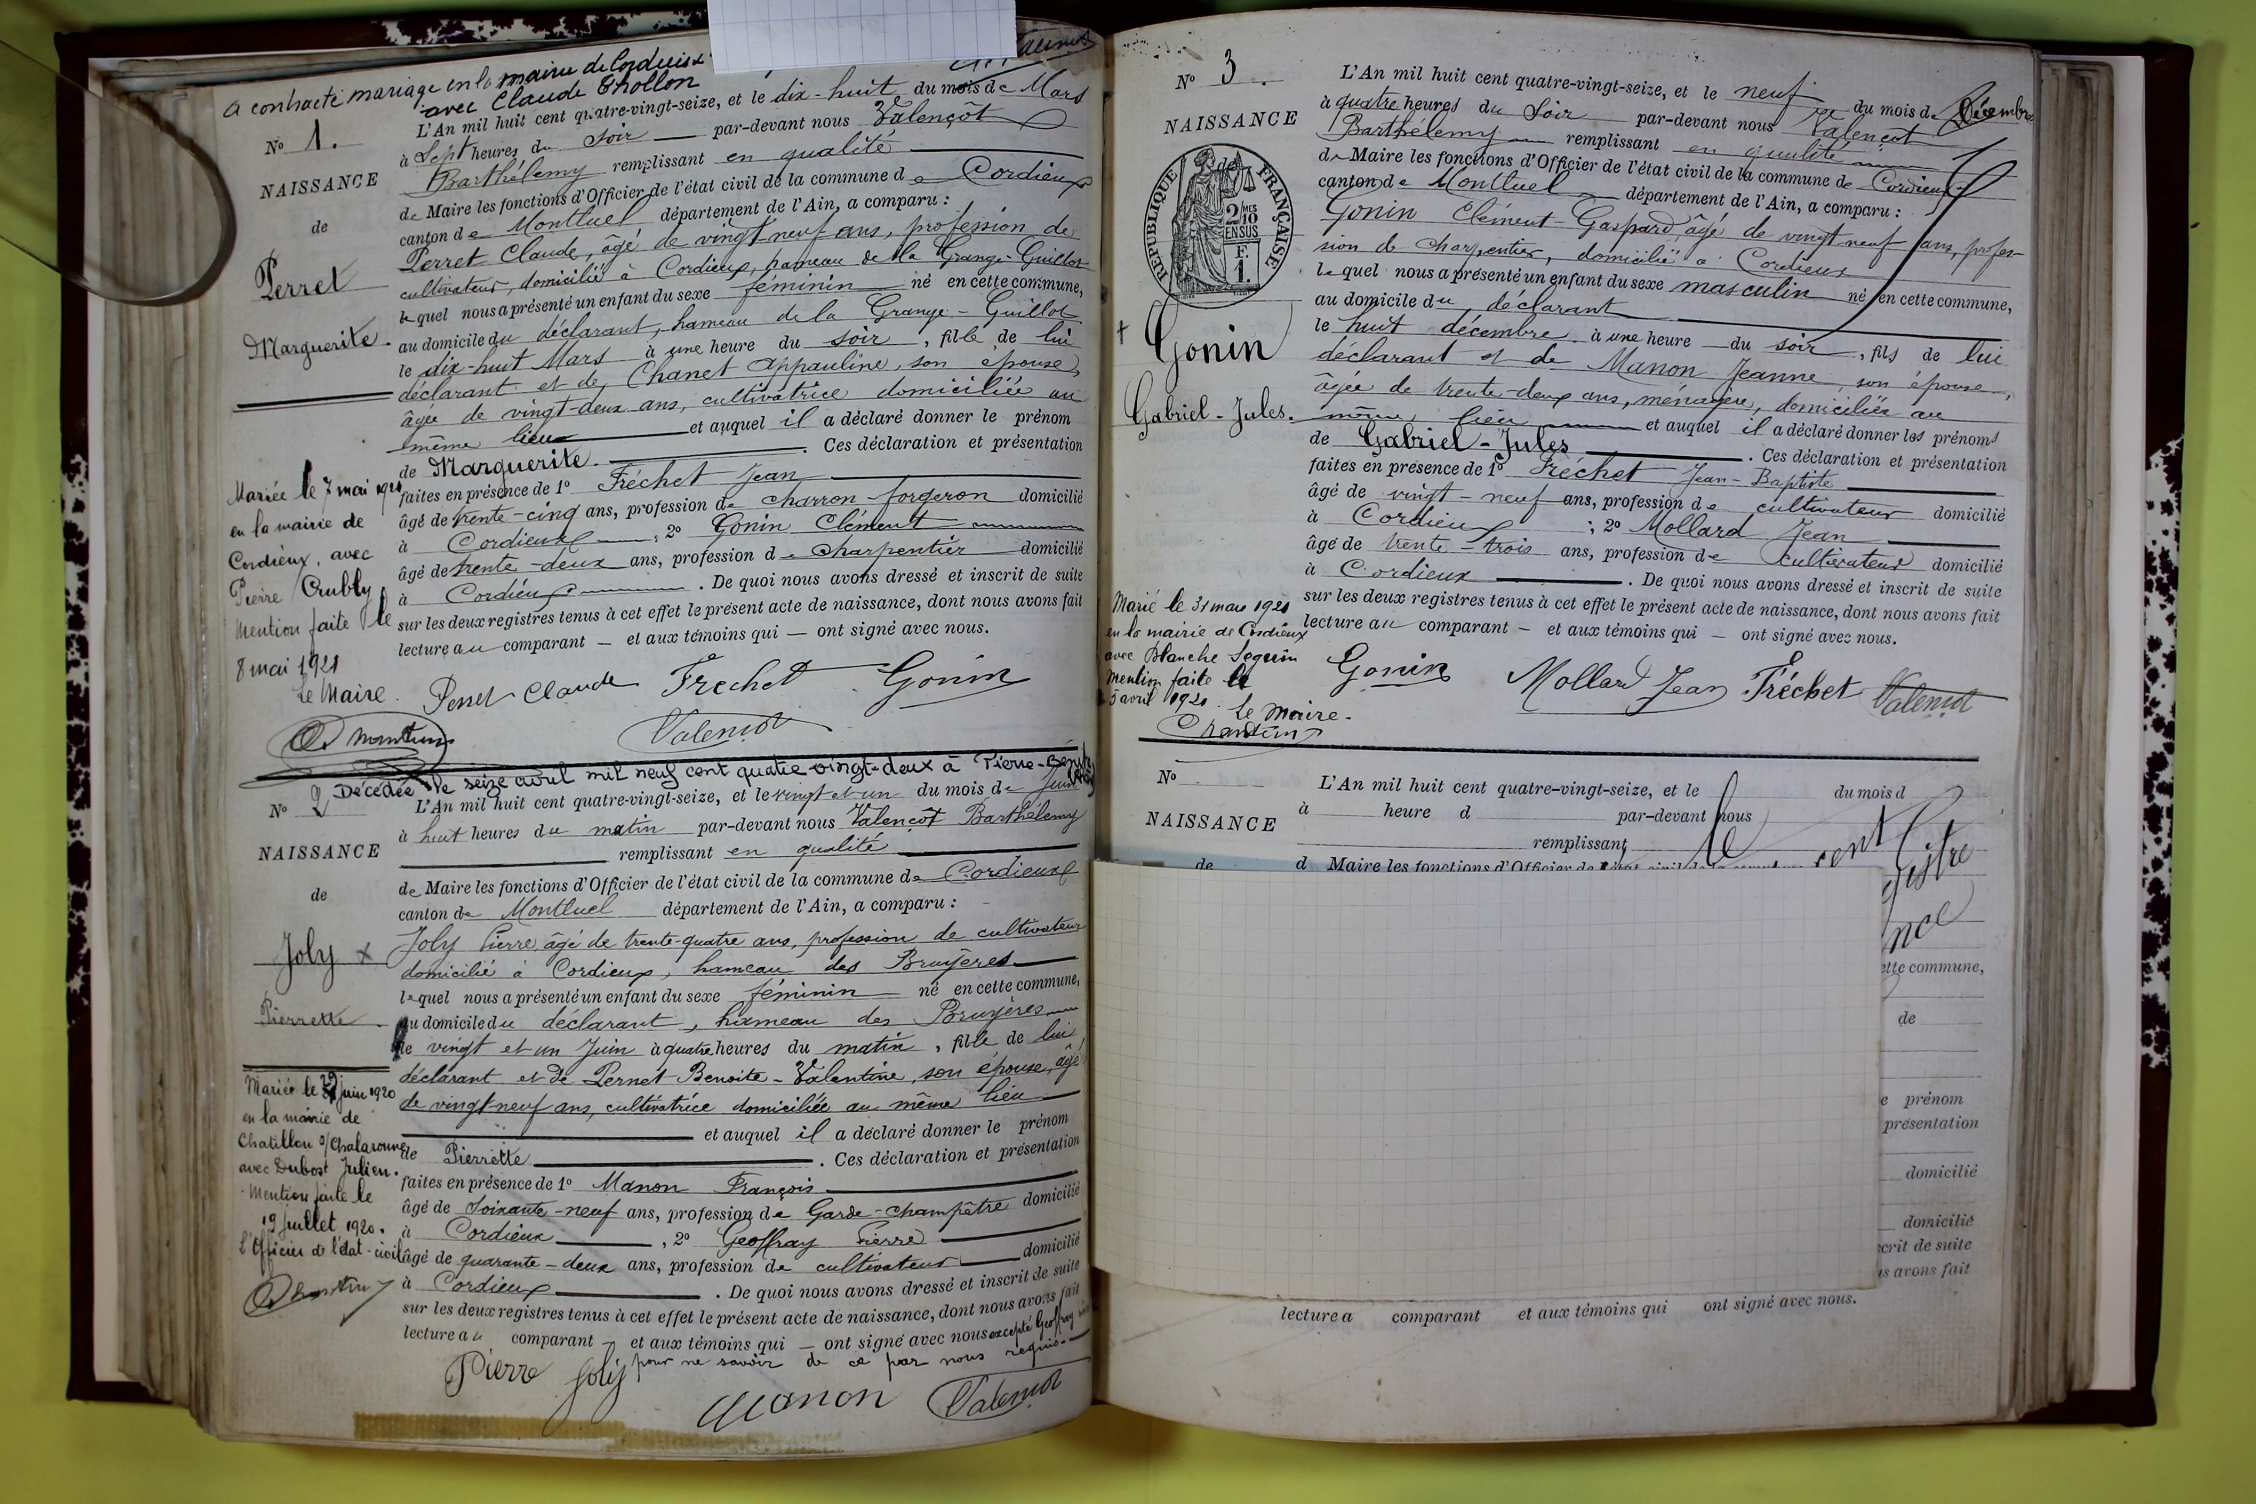 A contracté mariage en la mairie de Cordieux
avec Claude Thollon
Nº 1.
NAISSANCE
de
Perret
Marguerite.
L'An mil huit cent quatre-vingt-seize, et le dix-huit du mois de Mars
à Sept heures du soir par-devant nous Valençôt
Barthélemy remplissant en qualité
de Maire les fonctions d'Officier de l'état civil de la commune de Cordieux
canton de Montluel département de l'Ain, a comparu :
Perret Claude, âgé de vingt-neuf ans, profession de
cultivateur, domicilié à Cordieux, hameau de la Grange-Guillot
lequel nous a présenté un enfant du sexe féminin né en cette commune,
au domicile du déclarant, hameau de la Grange-Guillot
le dix-huit Mars à une heure du soir, fille de lui
déclarant et de Chanet Appauline, son épouse,
âgée de vingt-deux ans, cultivatrice domiciliée au
même lieu et auquel il a déclaré donner le prénom
de Marguerite. Ces déclaration et présentation
faites en présence de 1º Fréchet Jean
âgé de trente-cinq ans, profession de charron-forgeron domicilié
à Cordieux, 2º Gonin Clément
âgé de trente-deux ans, profession de charpentier domicilié
à Cordieux. De quoi nous avons dressé et inscrit de suite
sur les deux registres tenus à cet effet le présent acte de naissance, dont nous avons fait
lecture au comparant — et aux témoins qui — ont signé avec nous.
Perret Claude Frechet Gonin
Valençot
Mariée le 7 mai 1921
en la mairie de
Cordieux, avec
Pierre
Mention faite le
8 mai 1921
Le Maire.
Décédée le seize avril mil neuf cent quatre vingt-deux à Pierre-Bénite
Nº 2
NAISSANCE
de
Joly x
Pierrette.
L'An mil huit cent quatre-vingt-seize, et le vingt et un du mois de Juin
à huit heures du matin par-devant nous Valençôt Barthélemy
remplissant en qualité
de Maire les fonctions d'Officier de l'état civil de la commune de Cordieux
canton de Montluel département de l'Ain, a comparu :
Joly Pierre âgé de trente-quatre ans, profession de cultivateur
domicilié à Cordieux, hameau des Bruyères
lequel nous a présenté un enfant du sexe féminin né en cette commune,
au domicile du déclarant, hameau des Bruyères
le vingt et un Juin à quatre heures du matin, fille de lui
déclarant et de Pernet Benoite-Valentine, son épouse, âgé
de vingt-neuf ans, cultivatrice domiciliée au même lieu
et auquel il a déclaré donner le prénom
de Pierrette. Ces déclaration et présentation
faites en présence de 1º Manon François
âgé de Soixante-neuf ans, profession de Garde-champêtre domicilié
à Cordieux, 2º Geoffray Pierre
âgé de quarante-deux ans, profession de cultivateur domicilié
à Cordieux. De quoi nous avons dressé et inscrit de suite
sur les deux registres tenus à cet effet le présent acte de naissance, dont nous avons fait
lecture au comparant — et aux témoins qui — ont signé avec nous excepté Geoffray
pour ne savoir de ce par nous requis.
Pierre Joly
Manon Valençot
Mariée le 29 juin 1920
en la mairie de
Chatillon s/Chalaronne
avec Dubost Julien.
Mention faite le
19 juillet 1920.
L'Officier de l'état-civil
Nº 3.
NAISSANCE
de
RÉPUBLIQUE FRANÇAISE
2/10 MES
EN SUS
F.
1.
Gonin
Gabriel-Jules.
L'An mil huit cent quatre-vingt-seize, et le neuf du mois de Décembre
à quatre heures du Soir par-devant nous Valençot
Barthélemy remplissant en qualité
de Maire les fonctions d'Officier de l'état civil de la commune de Cordieux
canton de Montluel département de l'Ain, a comparu :
Gonin Clément-Gaspard âgé de vingt neuf ans, profes-
sion de charpentier, domicilié à Cordieux
lequel nous a présenté un enfant du sexe masculin né en cette commune,
au domicile du déclarant
le huit décembre à une heure du soir, fils de lui
déclarant et de Manon Jeanne, son épouse,
âgée de trente-deux ans, ménagère, domiciliée au
même lieu et auquel il a déclaré donner les prénoms
de Gabriel-Jules. Ces déclaration et présentation
faites en présence de 1º Fréchet Jean-Baptiste
âgé de vingt-neuf ans, profession de cultivateur domicilié
à Cordieux; 2º Mollard Jean
âgé de trente-trois ans, profession de cultivateur domicilié
à Cordieux. De quoi nous avons dressé et inscrit de suite
sur les deux registres tenus à cet effet le présent acte de naissance, dont nous avons fait
lecture au comparant — et aux témoins qui — ont signé avec nous.
Gonin Mollard Jean Fréchet Valençot
Marié le 31 mars 1921
en la mairie de Cordieux
avec Blanche Seguin
Mention faite le
5 avril 1921.
Le Maire.
Nº
NAISSANCE
de
L'An mil huit cent quatre-vingt-seize, et le du mois d
à heure d par-devant nous
remplissant
d Maire les fonctions d'Officier de l'état civil de la commune
cent
istre
nce
ette commune,
de
e prénom
présentation
domicilié
domicilié
scrit de suite
s avons fait
lecture a comparant et aux témoins qui ont signé avec nous.